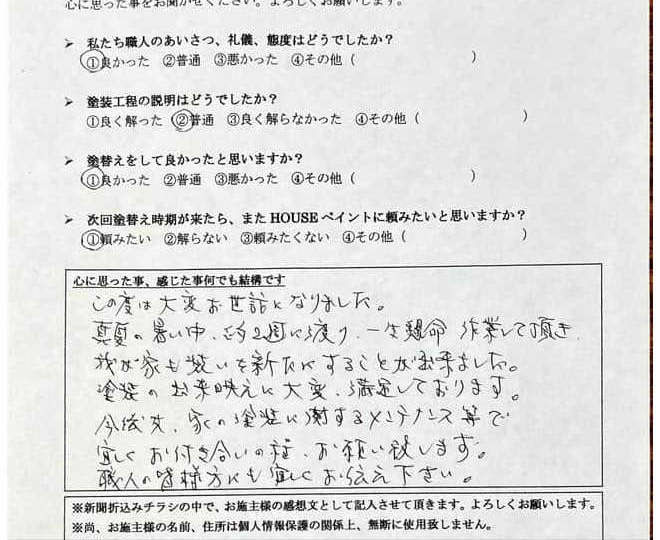 心に思った事をお聞かせください。よろしくお願いします。
➤ 私たち職人のあいさつ、礼儀、態度はどうでしたか？
①良かった ②普通 ③悪かった ④その他（ ）
➤ 塗装工程の説明はどうでしたか？
①良く解った ②普通 ③良く解らなかった ④その他（ ）
➤ 塗替えをして良かったと思いますか？
①良かった ②普通 ③悪かった ④その他（ ）
➤ 次回塗替え時期が来たら、また HOUSE ペイントに頼みたいと思いますか？
①頼みたい ②解らない ③頼みたくない ④その他（ ）
心に思った事、感じた事何でも結構です
この度は大変お世話になりました。
真夏の暑い中、約2週に渡り、一生懸命 作業して頂き
我が家も装いを新たにすることが出来ました。
塗装の出来映えに大変、満足しております。
今後共、家の塗装に対するメンテナンス等で
宜しくお付き合いの程、お願い致します。
職人の皆様方にも宜しくお伝え下さい。
※新聞折込みチラシの中で、お施主様の感想文として記入させて頂きます。よろしくお願いします。
※尚、お施主様の名前、住所は個人情報保護の関係上、無断に使用致しません。